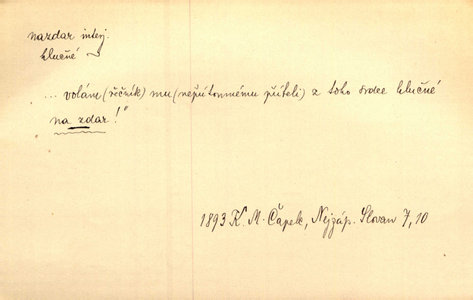 nazdar interj.
hlučné
... volám (řečník) mu (nepřítomnému příteli) z toho srdce hlučné
na zdar!"
1893 K. M. Čapek, Nejzáp. Slovan 7, 10